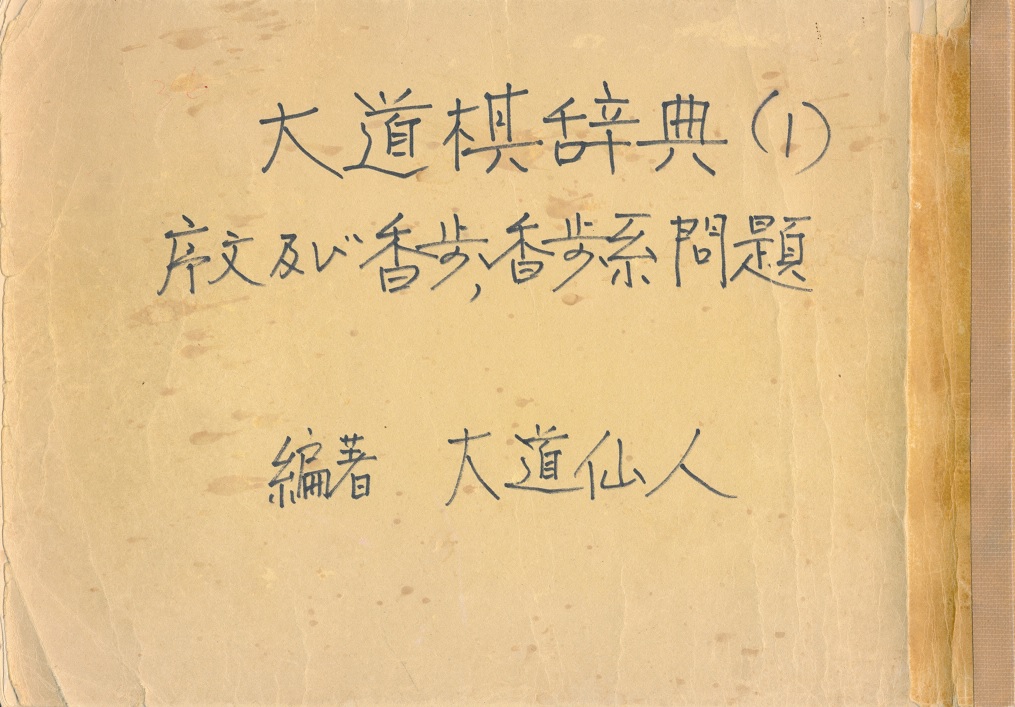 大道棋辞典(1)
序文及び香歩,香歩系問題
編著 大道仙人